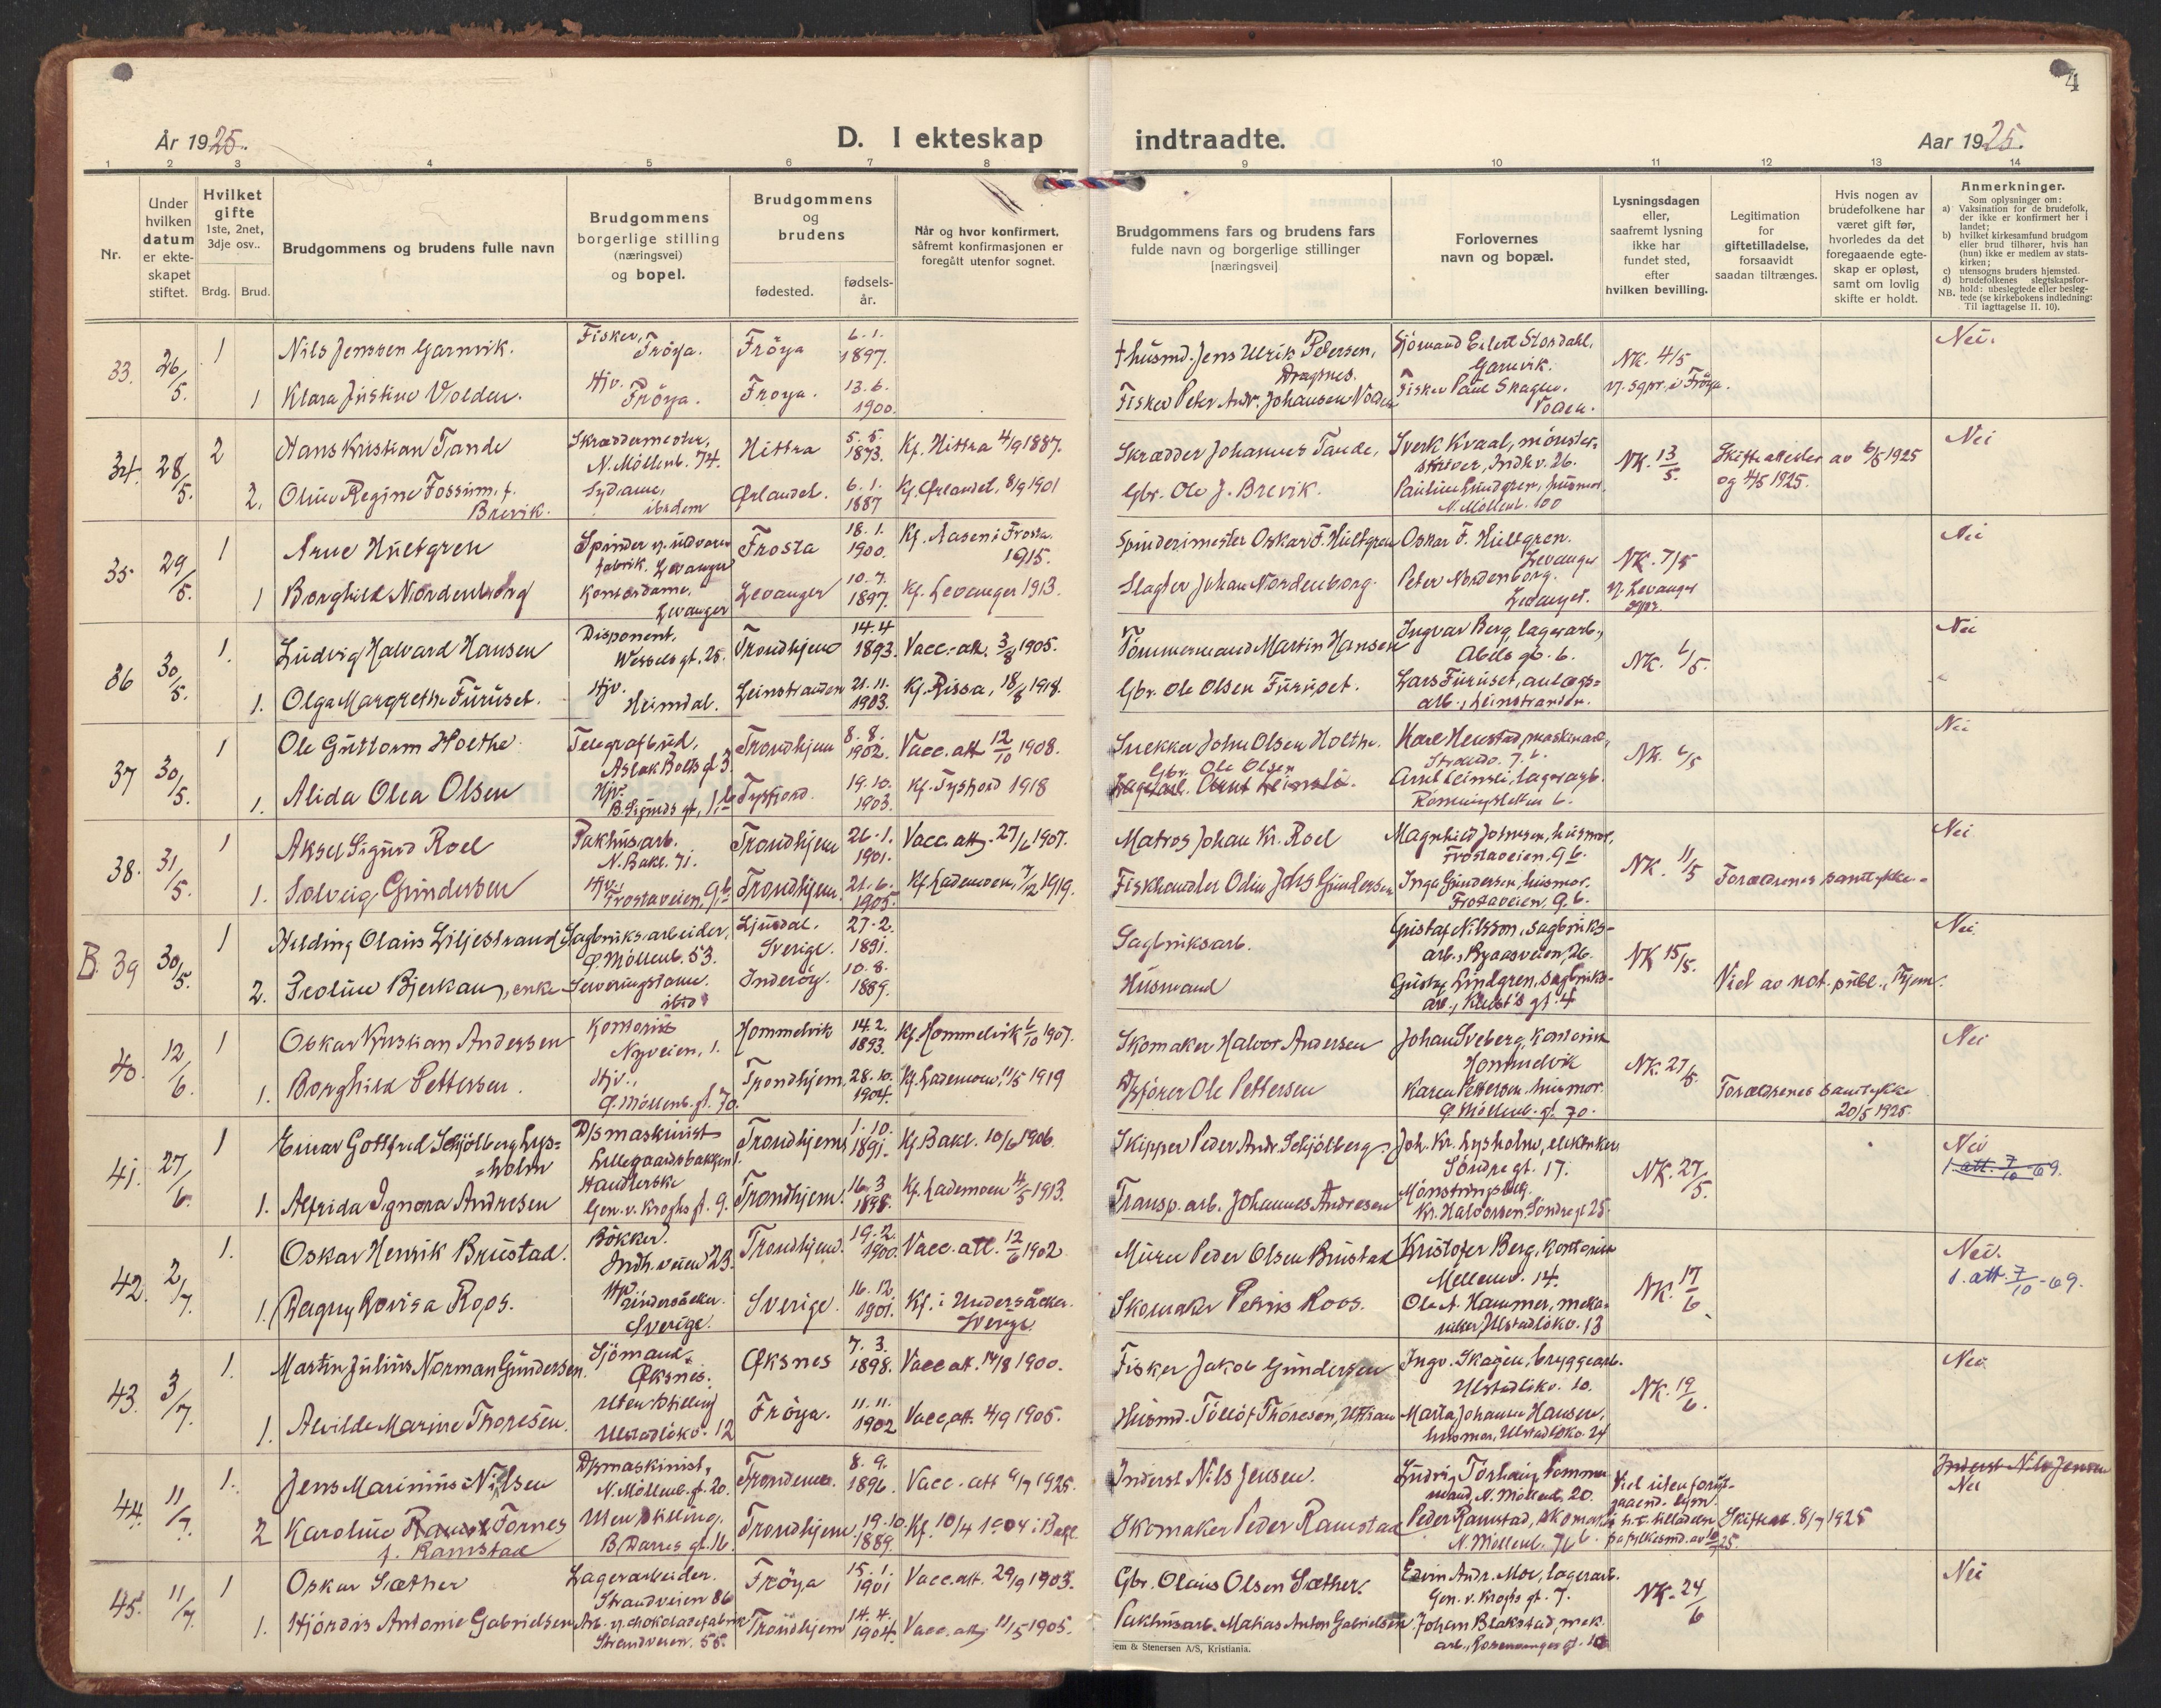 4
År 1925.
D. I ekteskap
indtraadte.
Aar 1925.
1 2 3 4 5 6 7 8 9 10 11 12 13 14
Nr.
Under
hvilken
datum
er ekte-
skapet
stiftet.
Hvilket
gifte
1ste, 2net,
3dje osv..
Brdg. Brud.
Brudgommens og brudens fulle navn
Brudgommens
borgerlige stilling
(næringsvei)
og bopel.
Brudgommens
og
brudens
fødested.
fødsels-
år.
Når og hvor konfirmert,
såfremt konfirmasjonen er
foregått utenfor sognet.
Brudgommens fars og brudens fars
fulde navn og borgerlige stillinger
[næringsvei]
Forlovernes
navn og bopæl.
Lysningsdagen
eller,
saafremt lysning
ikke har
fundet sted,
efter
hvilken bevilling.
Legitimation
for
giftetilladelse,
forsaavidt
saadan tiltrænges.
Hvis nogen av
brudefolkene har
været gift før,
hvorledes da det
foregaaende egte-
skap er opløst,
samt om lovlig
skifte er holdt.
Anmerkninger.
Som oplysninger om:
a) Vaksination for de brudefolk,
der ikke er konfirmert her i
landet;
b) hvilket kirkesamfund brudgom
eller brud tilhører, hvis han
(hun) ikke er medlem av stats-
kirken;
c) utensogns bruders hjemsted.
d) brudefolkenes slegtskapsfor-
hold: ubeslegtede eller besleg-
NB. tede (se kirkebokens indledning:
Til iagttagelse II. 10).
33. 26/5. 1 Nils Jenssen Garnvik. Fisker, Fröya. Fröya 6.1. 1897. † husmd. Jens Ulrik Petersen, Dragsnes. Sjömand Eilert Stordahl, Garnvik. NK. 4/5 Nei.
1 Klara Justine Volden. Hjv. Fröya. Fröya. 13.6. 1900. Fisker Peter Andr. Johansen Volden Fisker Paul Skagen. v. sgpr. i Fröya.
34. 28/5. 2 Hans Kristian Tande Skræddermester, N. Möllenb. 74. Hittra 5.5. 1873. Kf. Hittra 4/9 1887. Skrædder Johannes Tande, Sverk Kvaal, mönster-skriver, Indh.v. 26. NK. 13/5. Skifteattester av 6/5 1925 Nei
2. Oline Regine Fossum, f. Brevik. Sydame, ibidem Ørlandet. 6.1. 1887 Kf. Ørlandet, 8/9 1901 Gbr. Ole J. Brevik. Pauline Lundgren, husmor. N. Möllenb. 100 og 4/5 1925.
35 29/5. 1 Arne Hultgren Spinder v. uldvarefabrik. Levanger Frosta 18.1. 1900. Kf. Aasen i Frosta. 1915. Spinderimester Oskar F. Hultgren Oskar F. Hultgren. Levanger NK. 7/5 Nei
1 Borghild Nordenborg Kontordame. Levanger Levanger 10.7. 1897. Kf. Levanger 1913. Slagter Johan Nordenborg. Peter Nordenborg. Levanger. v. Levanger sgpr.
36 30/5. 1. Ludvig Halvard Hansen Disponent, Wessels gt. 25. Trondhjem 14.4 1893. Vacc.-att. 3/8 1905. Tömmermand Martin Hansen Ingvar Berg, lagerarb., Abels gt. 6. NK. 6/5. Nei
1. Olga Margrethe Furuset. Hjv. Heimdal. Leinstranden 21.11. 1903. Kf. Rissa, 18/8 1918. Gbr. Ole Olsen Furuset. Lars Furuset, anlægs=arb., Leinstranden.
37 30/5. 1 Ole Guttorm Holthe. Telegrafbud, Aslak Bolts gt 3. Trondhjem 8.8. 1902. Vacc. att 12/10 1908. Snekker John Olsen Holthe. Karl Henstad, maskinarb., NK. 6/5 Nei
1. Alida Olea Olsen Hjv. B. Sigurds gt, 1. b Tysfjord. 19.10. 1903. Kf. Tysfjord 1918 Gbr. Ole Olsen Lagerarb. Arnt Leinsli. Arnt Leinsli, lagerarb.
38. 31/5. 1 Aksel Sigurd Roel Pakhusarb. N. Bakl. 71. Trondhjem 26.1. 1901. Vacc. att. 27/6 1907. Matros Johan Kr. Roel Magnhild Johnsen, husmor, Frostaveien. 9 b. NK. 11/5 Forældrenes samtykke. Nei
1. Solveig Gundersen Hjv. Frostaveien, 9 b Trondhjem. 21.6. 1905. Kf. Lademoen, 7/12 1919. Fiskhandler Odin Johs Gundersen Inga Gundersen, husmor. Frostaveien, 9 b.
B. 39 30/5. 1 Hilding Olaus Liljestrand Sagbruksarbeider, Ø. Möllenb. 53. Ljusdal. Sverige. 27.2. 1891. Sagbruksarb. Gustaf Nilsson, sagbruks-arb., Byaasveien, 26. NK 15/5. Nei.
2. Bjerkan, enke Serveringsdame. ibid. Inderöy. 10.8. 1889. Husmand Gustaf Lindgren, sagbruks-arb., gt. 4 Viet av not. publ., Tjem.
40. 12/6. 1 Oskar Kristian Andersen Kontorist Nyveien, 1. Hommelvik 14.2. 1893. Kf. Hommelvik 6/10 1907. Skomaker Halvor Andersen Johan Sveberg, kontorist Hommelvik NK. 27/5. Nei
1. Borghild Pettersen. Hjv., Ø. Möllenb. gt. 70. Trondhjem, 28.10. 1904. Kf. Lademoen, 11/5 1919 D/sförer Ole Pettersen Karen Pettersen, husmor. Ø. Möllenb. gt. 70. Forældrenes samtykke 20/5 1925.
41. 27/6. 1 Einar Gottfred Schjölberg Lys=holm D/s maskinist Lillegaardsbakken 1. Trondhjem, 1.10. 1891. Kf. Bakl. 10/6 1906. Skipper Peder Andr. Schjölberg. Joh. Kr. Lysholm, elektriker, Söndre gt. 17. NK. 27/5. Nei 1. att. 7/10 -69.
1. Alfrida Ignora Andresen Handlerske Gen. v. Kroghs gt. 9. Trondhjem. 16.3 1898. Kf. Lademoen 4/5 1913. Transp. arb. Johannes Andresen Mönstringsbetj. Kr. Halvorsen, Söndre gt 25.
42. 2/7. 1. Oskar Henrik Brustad. Bökker. Indh. veien 23. Trondhjem. 19.2. 1900. Vacc. att. 12/6 1902 Murer Peder Olsen Brustad Kristofer Berg, kontorist Mellemv. 14. NK. 17/6. Nei. 1. att. 7/10 -69.
1. Ragny Rovisa Roos. Hjv. Undersåker. Sverige. Sverige. 16.12. 1901. Kf. i Undersåker. Sverge. Skomaker Petrus Roos. Ole A. Hammer, meka-niker, Ulstadløkv. 13
43. 3/7. 1. Martin Julius Norman Gundersen. Sjömand. Øksnes. Øksnes 7.3. 1898. Vacc att. 14/8 1900. Fisker Jakob Gundersen Ingv. Skagen, bryggearb. Ulstadløkv. 10. NK. 19/6. Nei.
1. Alvilde Marine Thoresen. Uten stilling Ulstadløkv. 12 Fröya. 11.11. 1902 Vacc, att. 4/9 1905. Husmd. Tollöf Thoresen, Uttian Marta Johanne Hansen, husmor, Ulstadløkv. 24
44. 11/7. 1. Jens Marinius Nilsen D/smaskinist, N. Möllenb. gt. 20. Trondenes. 8.9. 1896. Vacc. att 9/7 1925. Inderst Nils Jensen. Ludvig Torhaug, Tommermand, N. Möllenb. 20. Viet uten forut-gaaend. lysn. Inderst Nils Jensen Nei
2 Karoline Fornes f. Ramstad Uten stilling. B. Darres gt. 16. Trondhjem, 19.10. 1889. Kf. 10/4 1904 i Bakl. Skomaker Peder Ramstad Peder Ramstad, skomaker N. Möllenb. 76 b Skifteatt. 8/7 1925
45. 11/7. 1 Oskar Sæther Lagerarbeider. Strandveien 86 Fröya 15.1. 1901 Vacc. att. 29/9 1903. Gbr. Olaus Olsen Sæther. Edvin Andr. Moe, lagerarb. Gen. v. Kroghs gt. 7. NK. 24/6 Nei
1. Hjördis Antonie Gabrielsen Arb. v. chokoladefabrik Strandveien. 55. Trondhjem 14.4. 1904. Vacc. att. 11/5 1905. Pakhusarb. Matias Anton Gabrielsen. Johan Blakstad, mek. arb., Rosenborgs gt. 10
em & Stenersen A/S, Kristiania.